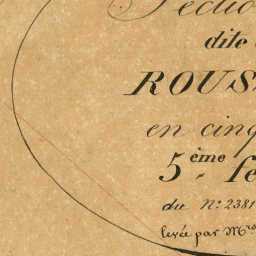 Sectio
dite
ROUS
en cinq
5.ème fe
du N.º 2381
levée par Mrs